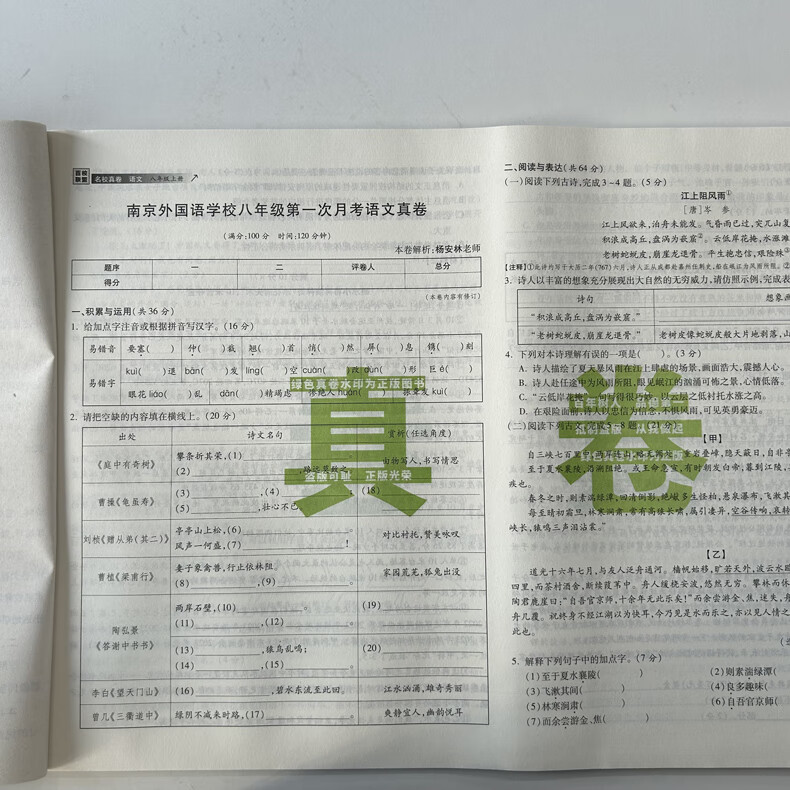 百校联盟 名校真卷 语文 八年级上册
南京外国语学校八年级第一次月考语文真卷
(满分:100分 时间:120分钟)
本卷解析:杨安林老师
题序 一 二 评卷人 总分
得分
(本卷内容有修订)
一、积累与运用(共36分)
1. 给加点字注音或根据拼音写汉字。(16分)
易错音 要塞( ) 仲( )裁 翘( )首 悄( )然 屏( )息 镌( )刻
易错字 kuì( )退 bān( )发 líng( )空 cuàn( )改 dùn( )形 巨é( )
眼花liáo( )乱 dàn( )精竭虑
2. 请把空缺的内容填在横线上。(20分)
出处 诗文名句 赏析(任选角度)
《庭中有奇树》 攀条折其荣,(1)
(2) 路远莫致之。 由物写人,书写情思
曹操《龟虽寿》 (3) ,(4) ; (18)
(5) ,壮心不已。
刘桢《赠从弟(其二)》 亭亭山上松,(6) 。 对比衬托,赞美咏叹
风声一何盛,(7) !
曹植《梁甫行》 妻子象禽兽,行止依林阻。 家园荒芜,狐兔出没
(8) ,(9) 。
陶弘景《答谢中书书》 两岸石壁,(10) 。 (19)
(11) ,(12) 。
(13) ,猿鸟乱鸣; (20)
(14) ,(15) 。
李白《望天门山》 (16) ,碧水东流至此回。 江水汹涌,雄奇秀丽
曾几《三衢道中》 绿阴不减来时路,(17) 。 爽静宜人,幽韵悦耳
真
绿色真卷水印为正版图书
盗版可耻 正版光荣
二、阅读与表达(共64分)
(一)阅读下列古诗,完成3~4题。(5分)
江上阻风雨①
[唐]岑 参
江上风欲来,泊舟未能发。气昏雨已过,突兀山复
积浪成高丘,盘涡为嵌窟②。云低岸花掩,水涨滩
老树蛇蜕皮,崩崖龙退骨。平生抱忠信,艰险殊
3. 诗人以丰富的想象充分展现出大自然的无穷威力,请仿照示例,完成表
诗句 想象画
“积浪成高丘,盘涡为嵌窟。”
“老树蛇蜕皮,崩崖龙退骨。” 老树皮像蛇蜕皮般大片地剥落,山
4. 下列对本诗理解有误的一项是( )。(3分)
A. 诗人描绘了夏天暴风雨在江上肆虐的场景,画面浩大,震撼人心。
B. 诗人赴任途中为风雨所阻,眼见岷江的汹涌可怖之景,心情低落。
C. “云低岸花掩”一句写得很巧妙,以云层之低衬托水涨之高。
D. 在艰险面前,诗人以忠信为信念,不惧风雨,可见英勇豪迈。
(二)阅读下列古文,完成5~8题。(21分)
【甲】
自三峡七百里中,两岸连山,略无阙处。重岩叠嶂,隐天蔽日,自非亭
至于夏水襄陵,沿溯阻绝。或王命急宣,有时朝发白帝,暮到江陵,
疾也。
春冬之时,则素湍绿潭,回清倒影,绝巘多生怪柏,悬泉瀑布,飞漱其
每至晴初霜旦,林寒涧肃,常有高猿长啸,属引凄异,空谷传响,哀转
峡长,猿鸣三声泪沾裳。”
【乙】
道光十六年七月,与友人泛舟通河。
四里,而茶村酒舍,断续葭苇中。舟人缓桡安波,悠然无穷。
陶君凫崖曰:“自吾官京师,十余年无此乐矣!”而余尝游金、焦,
舟几覆。祝终身不经江湖以为快耳,今乃见是水而乐之,亦以见人情之
此也。
5. 解释下列句子中的加点字。(7分)
(1)至于夏水襄陵( ) (2)则素湍绿潭(
(3)飞漱其间( ) (4)良多趣味(
(5)林寒涧肃( ) (6)自吾官京师(
(7)而余尝游金、焦( )
卷